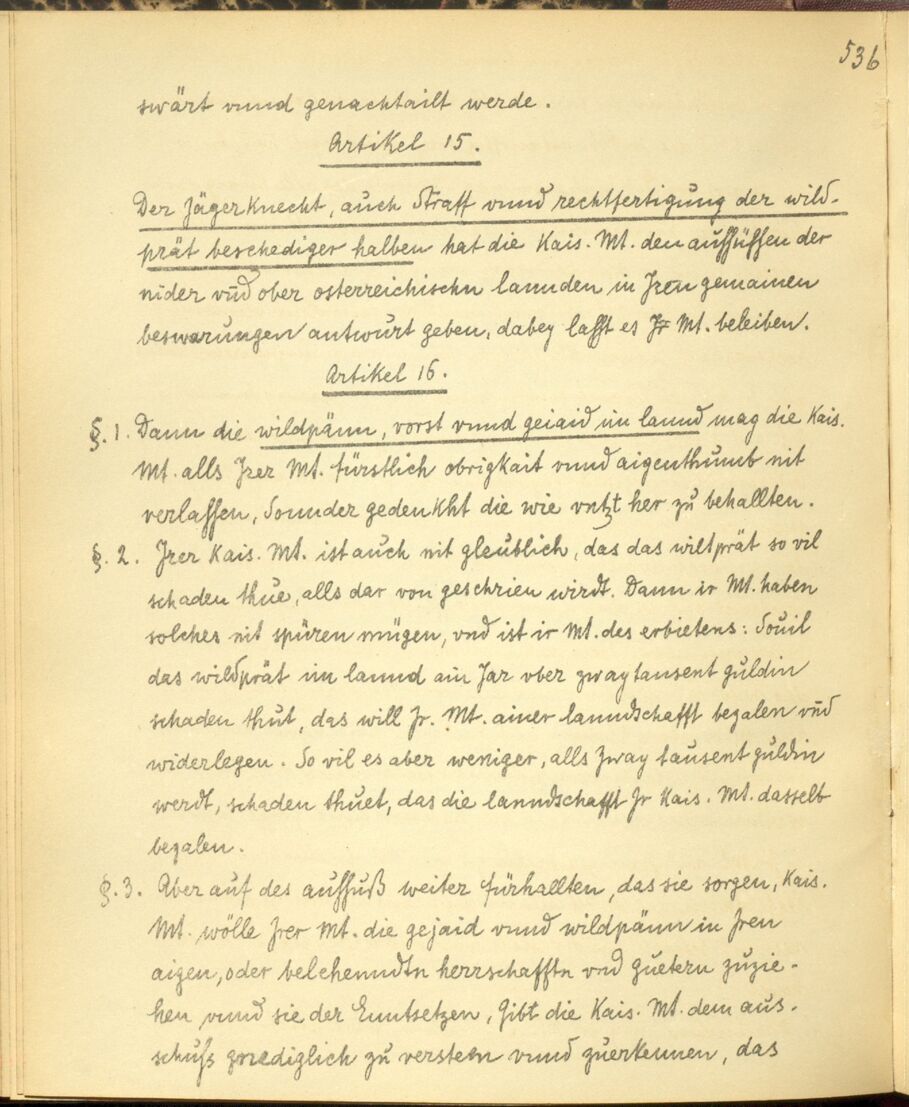 536
swärt vnnd genachtailt werde.
Artikel 15.
Der Jägerknecht, auch Straff vnnd rechtfertigung der wild-
prät beschediger halben hat die Kais. Mt. den auſſüſſen der
nider vn̄d ober osterreichischn lannden in Iren gemainen
beswarungen antwurt geben, dabey laſſt es Ir Mt. beleiben.
Artikel 16.
§. 1. Dann die wildpänn, vorst vnnd geiaid im lannd mag die Kais.
Mt. alls Irer Mt. fürstlich obrigkait vnnd aigenthumb nit
verlaſſen, Sonnder gedenkht die wie yntzt her zu behallten.
§. 2. Irer Kais. Mt. ist auch nit gleublich, das das wiltprät so vil
schaden thue, alls dar von geschrien wirdt. Dann ir Mt. haben
solches nit spüren mügen, vnd ist ir Mt. des erbietens: Souil
das wildprät im lannd ain Jar vber zwaytausent guldin
schaden thut, das will Ir. Mt. ainer lanndschafft bezalen vn̄d
widerlegen. So vil es aber weniger, alls zway tausent guldin
werdt, schaden thuet, das die lanndschafft Ir Kais. Mt. dasselb
bezalen.
§. 3. Aber auf des auſſuß weiter fürhallten, das sie sorgen, Kais.
Mt. wölle Irer Mt. die gejaid vnnd wildpänn in Iren
aigen, oder belehenndtn herrschafftn vnd guetern zuzie-
hen vnnd sie der Enntsetzen, Gibt die Kais. Mt. dem aus-
schuſs gnediglich zu versteen vnnd zuerkennen, das